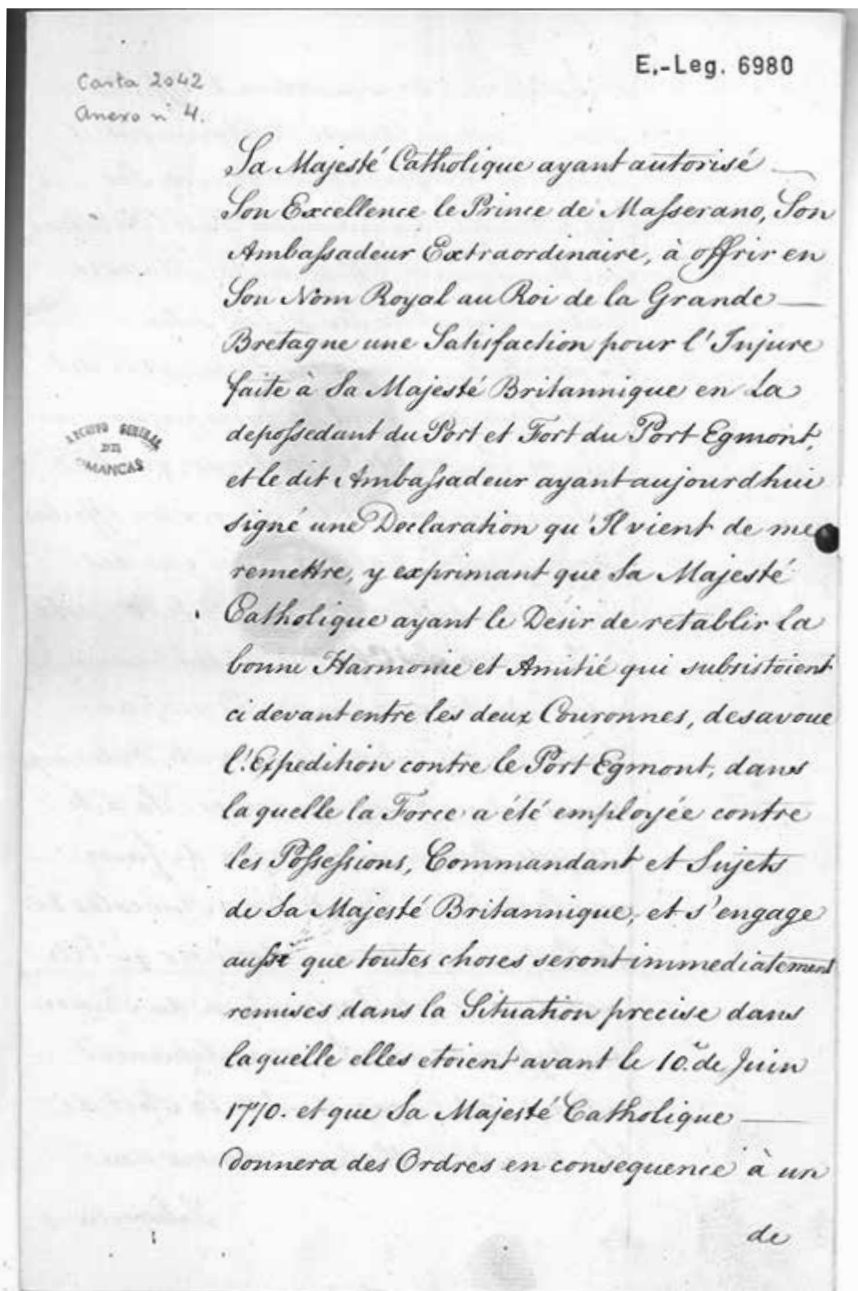 E,-Leg. 6980
Carta 2042
Anexo nº 4.
Sa Majesté Catholique ayant autorisé
Son Excellence le Prince de Masserano, Son
Ambassadeur Extraordinaire, à offrir en
Son Nom Royal au Roi de la Grande
Bretagne une Satisfaction pour l'Injure
faite a Sa Majesté Britannique en La
depossedant du Port et Fort du Port Egmont,
et le dit Ambassadeur ayant aujourdhui
signé une Declaration qu'Il vient de me
remettre, y exprimant que Sa Majesté
Catholique ayant le Desir de retablir la
bonne Harmonie et Amitié qui subsistoient
ci devant entre les deux Couronnes, desavoue
l'Expedition contre le Port Egmont, dans
laquelle la Force a été employée contre
les Possessions, Commandant et Sujets
de Sa Majesté Britannique, et s'engage
aussi que toutes choses seront immediatement
remises dans la Situation precise dans
laquelle elles etoient avant le 10.e de Juin
1770. et que Sa Majesté Catholique
donnera des Ordres en consequence à un
de
ARCHIVO GENERAL
DE
SIMANCAS